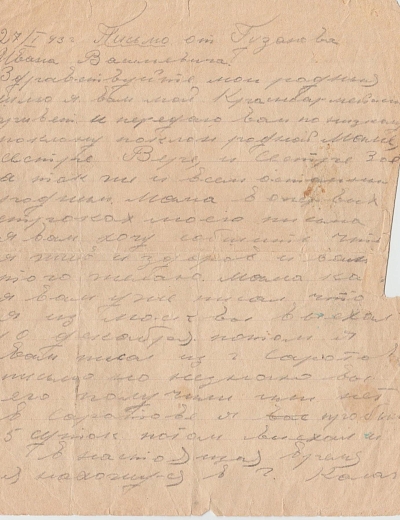 27/I 43 г. Письмо от Гузанова
Ивана Васильевича
Здравствуйте мои родные
шлю я вам мой Красноармейский
привет и передаю вам по низкому
поклону поклон родной Маме,
сестре Вере, и Сестре Зое
и так же и всем остальным
родным. Мама в первых
строчках моего письма
я вам хочу сообщить что
я жив и здоров и вам
того желаю. Мама
я вам уже писал что
я из Москвы выехал
10 декабря потом я
вам писал из г Саратов
письмо но незнаю вы
его получили или нет
в Саратове я
5 суток потом выехал и
в настоящая время
я нахожуся в г.